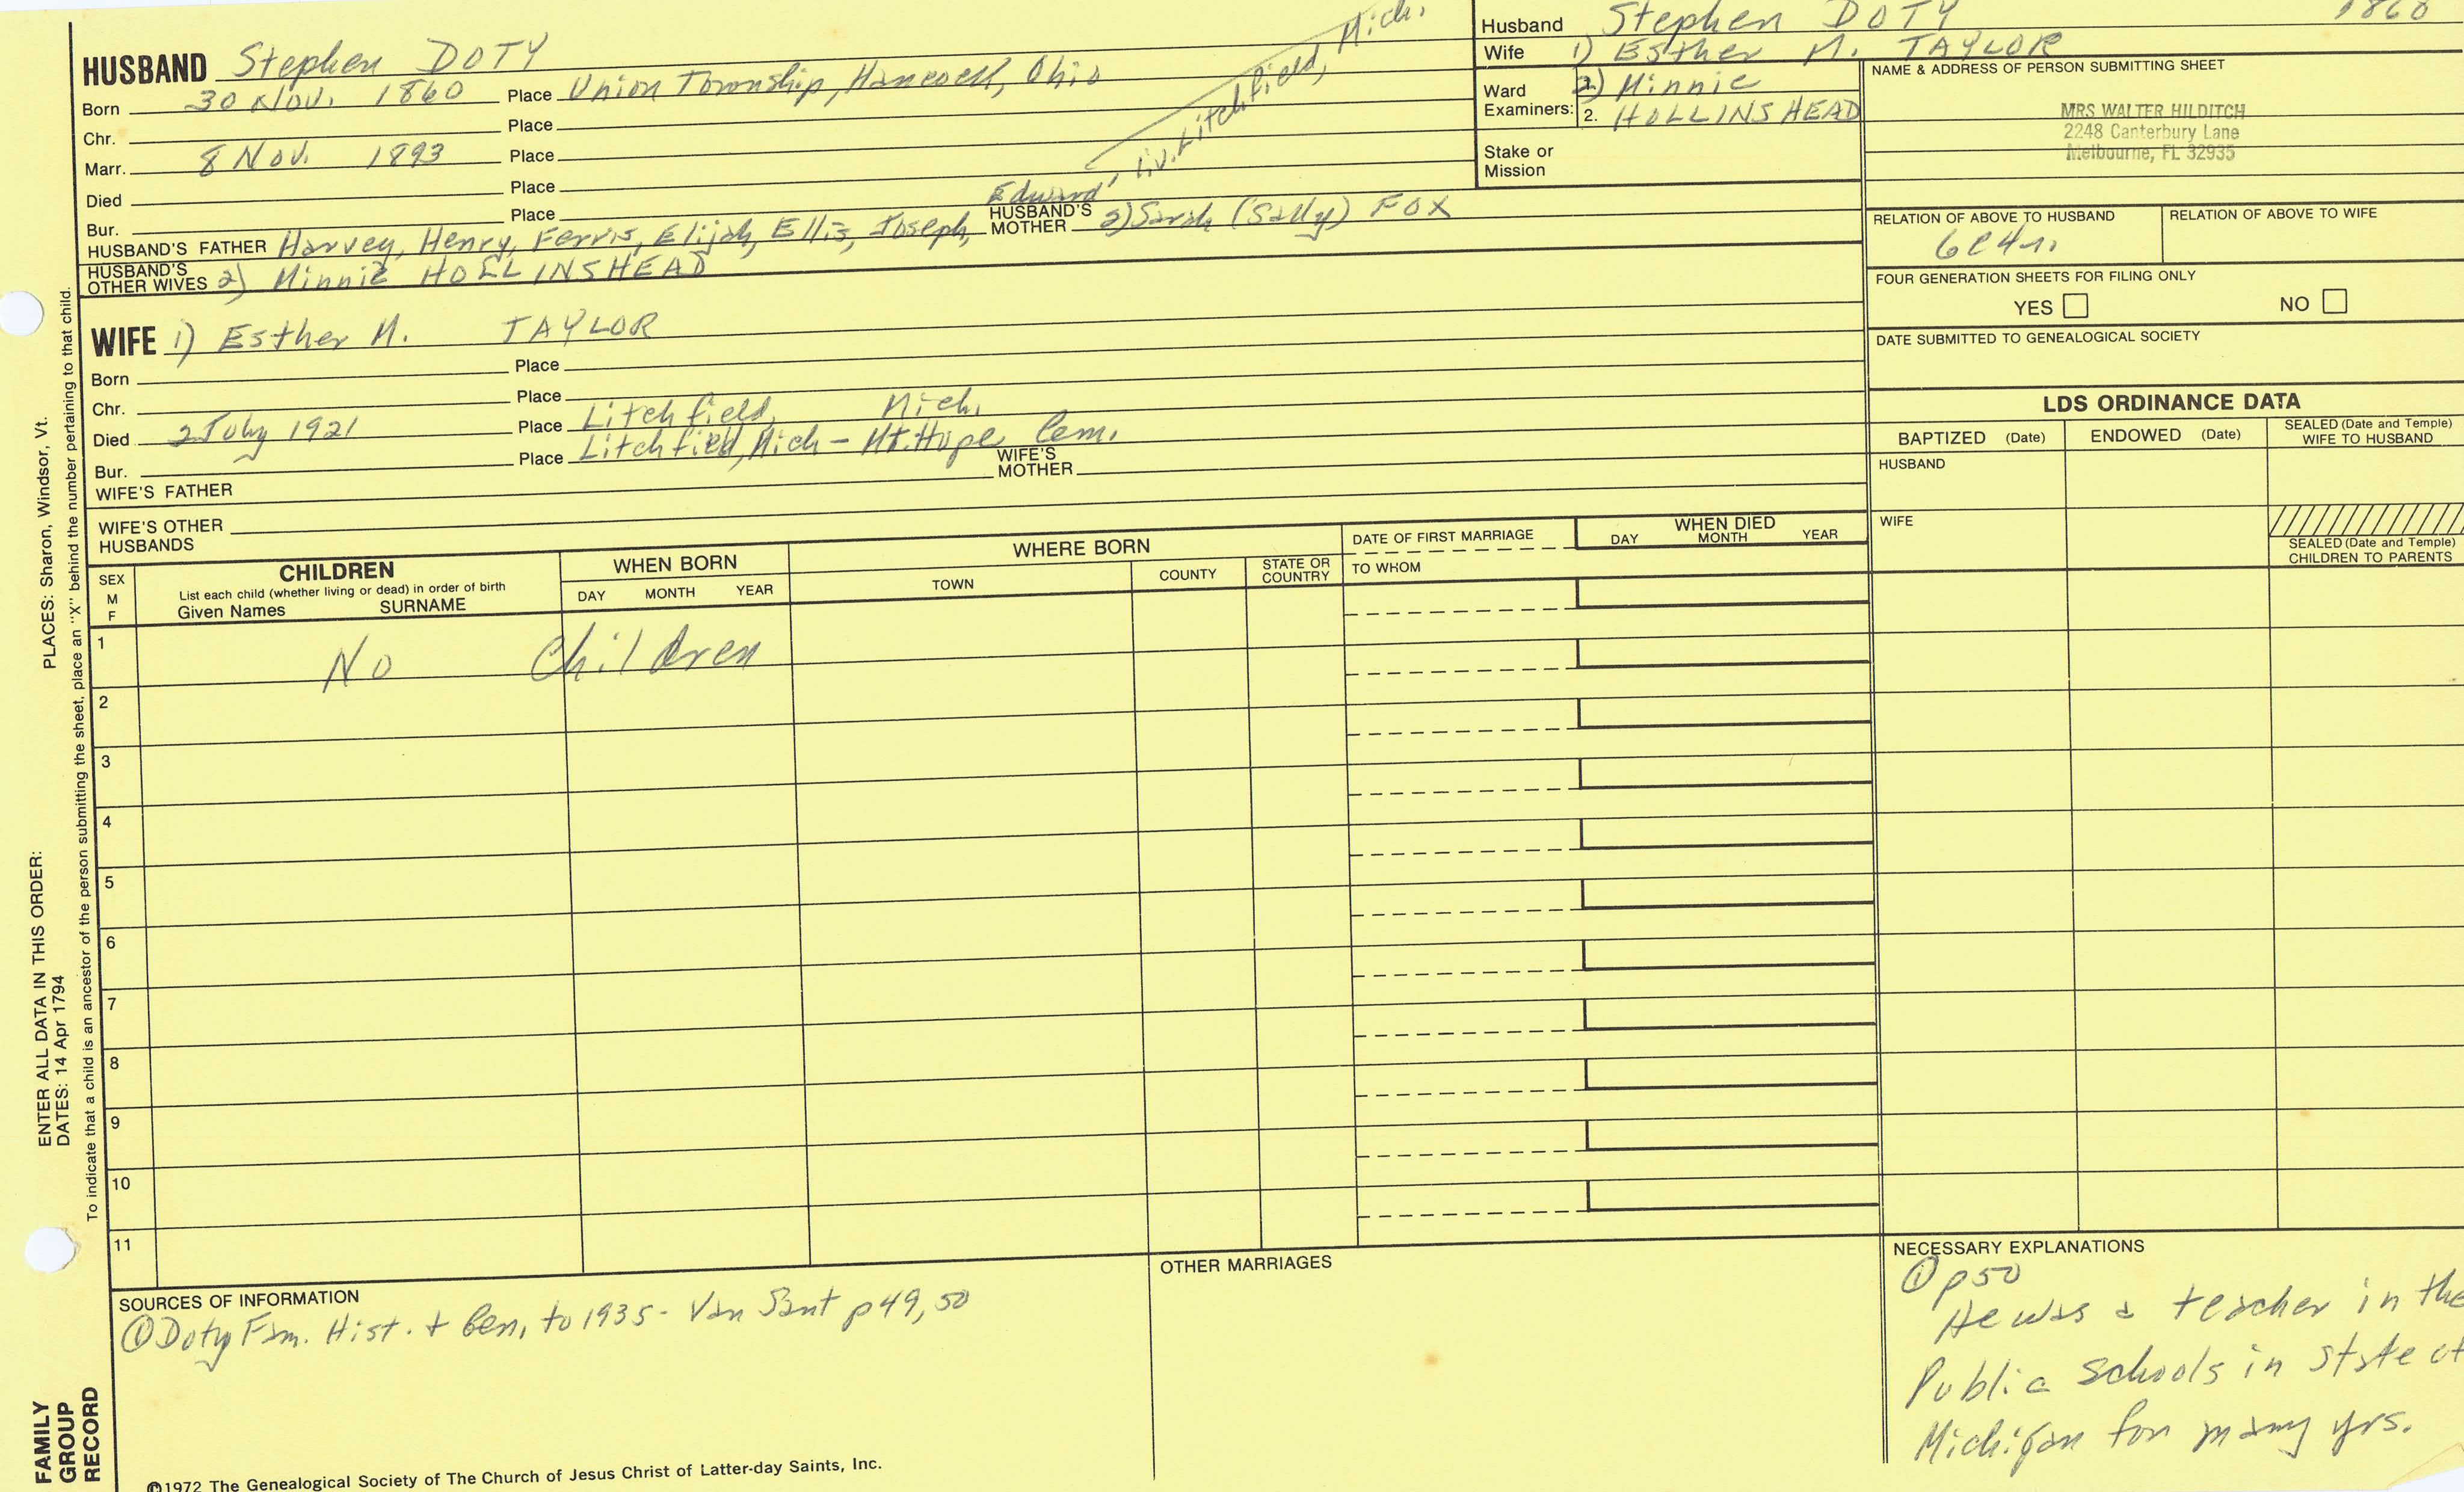 HUSBAND Stephen DOTY
Born 30 Nov. 1860 Place Union Township, Hancock, Ohio
Chr. Place
Marr. 8 Nov. 1893 Place
Died Place
Bur. Place
liv. Litchfield, Mich.
HUSBAND'S FATHER Harvey, Henry, Ferris, Elijah, Ellis, Joseph, Edward HUSBAND'S MOTHER 2) Sarah (Sally) FOX
HUSBAND'S OTHER WIVES 2) Minnie HOLLINSHEAD
WIFE 1) Esther M. TAYLOR
Born Place
Chr. Place
Died 2 July 1921 Place Litchfield, Mich.
Bur. Place Litchfield, Mich - Mt. Hope Cem.
WIFE'S FATHER WIFE'S MOTHER
WIFE'S OTHER HUSBANDS
Husband Stephen DOTY 1860
Wife 1) Esther M. TAYLOR
Ward Examiners: 1. 2) Minnie
2. HOLLINSHEAD
Stake or Mission
NAME & ADDRESS OF PERSON SUBMITTING SHEET
MRS WALTER HILDITCH
2248 Canterbury Lane
Melbourne, FL 32935
RELATION OF ABOVE TO HUSBAND RELATION OF ABOVE TO WIFE
6C4r.
FOUR GENERATION SHEETS FOR FILING ONLY
YES NO
DATE SUBMITTED TO GENEALOGICAL SOCIETY
LDS ORDINANCE DATA
BAPTIZED (Date) ENDOWED (Date) SEALED (Date and Temple) WIFE TO HUSBAND
HUSBAND
WIFE
SEALED (Date and Temple) CHILDREN TO PARENTS
SEX M F
CHILDREN
List each child (whether living or dead) in order of birth
Given Names SURNAME
WHEN BORN
DAY MONTH YEAR
WHERE BORN
TOWN COUNTY STATE OR COUNTRY
DATE OF FIRST MARRIAGE
TO WHOM
WHEN DIED
DAY MONTH YEAR
1 No Children
2
3
4
5
6
7
8
9
10
11
SOURCES OF INFORMATION
① Doty Fam. Hist. + Gen. to 1935 - Van Sant p 49, 50
OTHER MARRIAGES
NECESSARY EXPLANATIONS
① p50
He was a teacher in the
Public schools in state of
Michigan for many yrs.
©1972 The Genealogical Society of The Church of Jesus Christ of Latter-day Saints, Inc.
FAMILY GROUP RECORD
ENTER ALL DATA IN THIS ORDER:
DATES: 14 Apr 1794
PLACES: Sharon, Windsor, Vt.
To indicate that a child is an ancestor of the person submitting the sheet, place an "X" behind the number pertaining to that child.